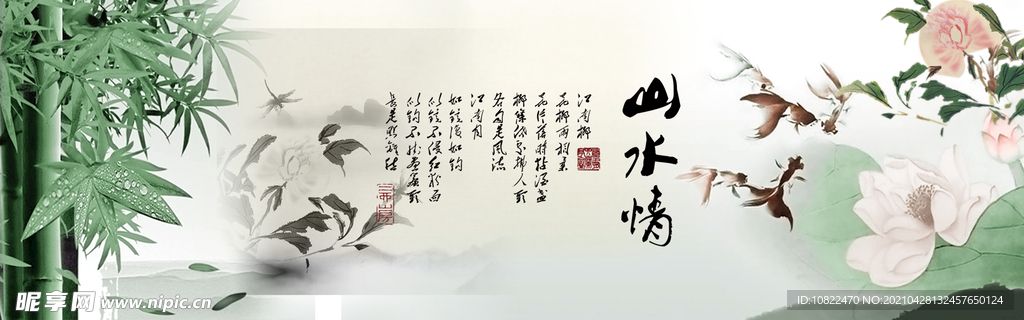 山水情
江南柳
花柳两相柔
花片落时粘酒盏
柳条低处拂人头
各自是风流
江南月
如镜复如钩
似镜不侵红粉面
似钩不挂画帘头
长是照离愁
昵享网 www.nipic.cn
ID:10822470 NO:20210428132457650124